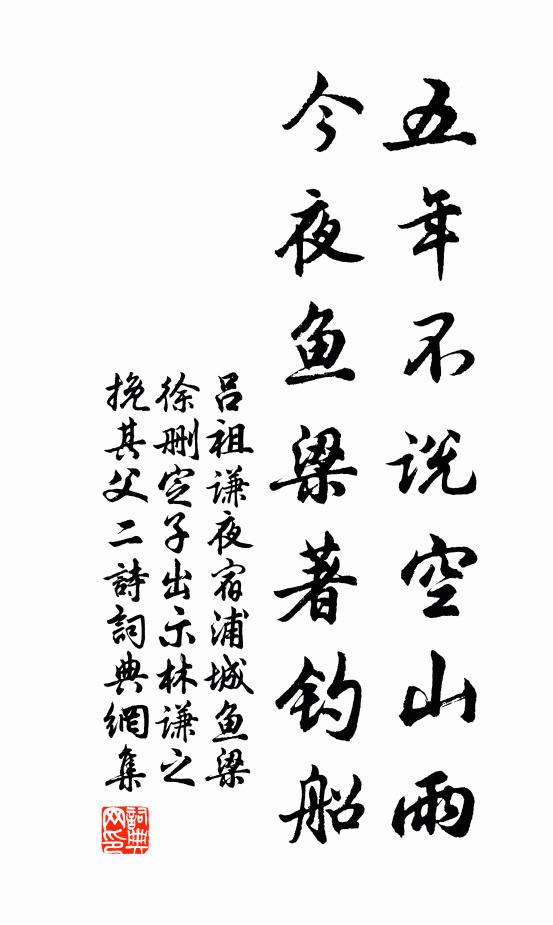 五年不说空山雨
今夜鱼梁著钓船
吕祖谦夜宿浦城鱼梁
徐删定子出示林谦之
挽其父二詩詞典網集
詞典网印